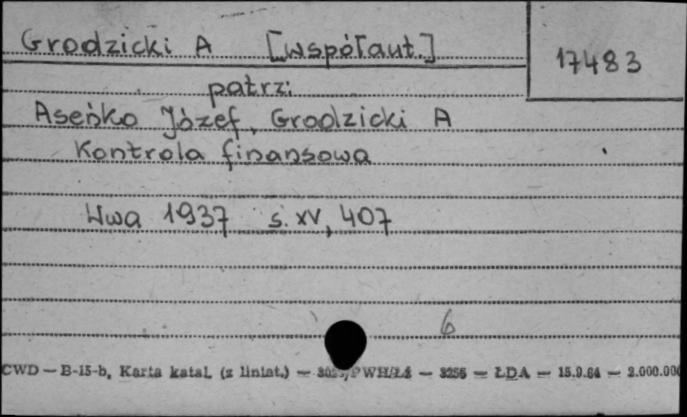 Grodzicki A [współaut.]
17483
patrz:
Aseńko Józef, Grodzicki A
Kontrola finansowa
Wwa 1937 s. XV, 407
6
CWD — B-15-b, Karta katal. (z liniat.) — PWH/Łź — 3256 — ŁDA — 15.9.64 — 2.000.000